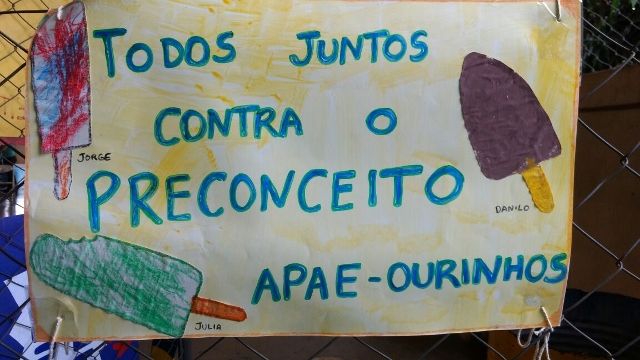 TODOS JUNTOS
CONTRA O
PRECONCEITO
APAE-OURINHOS
JORGE
DANILO
JULIA